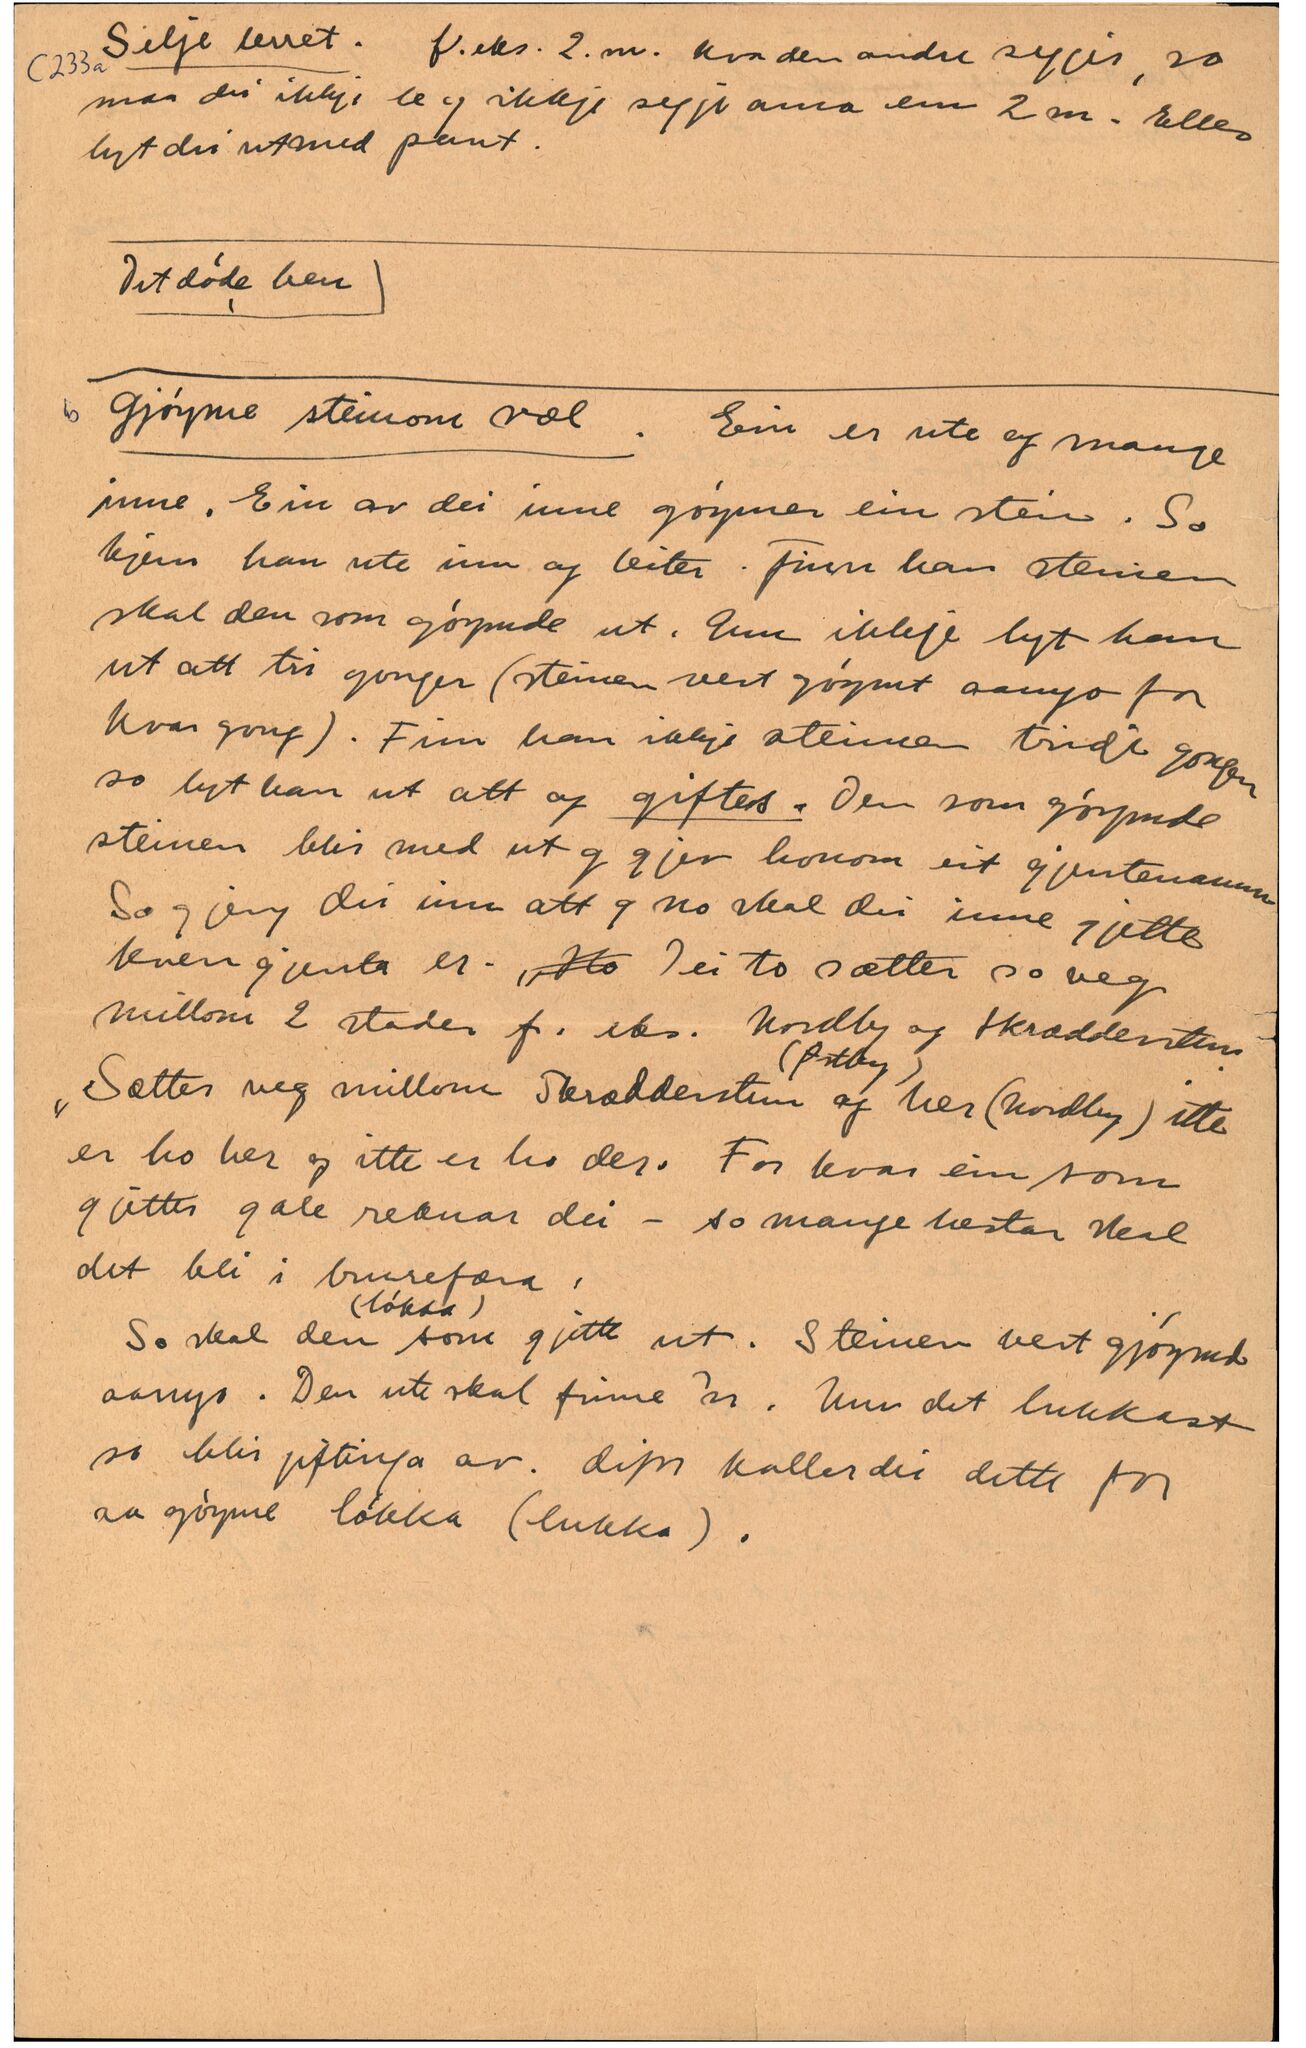 C233a
Selje lerret. f. eks. 2. m. kva den andre seggjer, so
maa dei ikkje le og ikkje seggje anna enn 2 m. Elles
lyt dei ut med pant.
Det døde ben
b Gjøyme steinom væl. Ein er ute og mange
inne. Ein av dei inne gøymer ein stein. So
kjem han ute inn og leiter. Finn han steinen
skal den som gøymde ut. Enn ikkje lyt han
ut att tri gonger (steinen vert gøymt aanyo for
kvar gong). Finn han ikkje steinen tridje gongen
so lyt han ut att og giftes. Den som gøymde
steinen blir med ut og gjev honom eit gjentenamn
So gjeng dei inn att og no skal dei inne gjette
kven gjenta er. Dei to sætter so veg
millom 2 stader f. eks. Nordby og Skræddersten.
(Østby)
"Sætter veg millom Skræddersten og her (Nordby) itte
er ho her og itte er ho der. For kvar ein som
gjetter gale reknar dei – so mange hestar skal
det bli i bruref��ra.
(løkka)
So skal den som gjette ut. Steinen vert gjøymd
aanyo. Den ute skal finne 'n. Um det lukkast
so blir giftinga av. Difor kaller dei dette for
aa gøyme løkka (lukka).